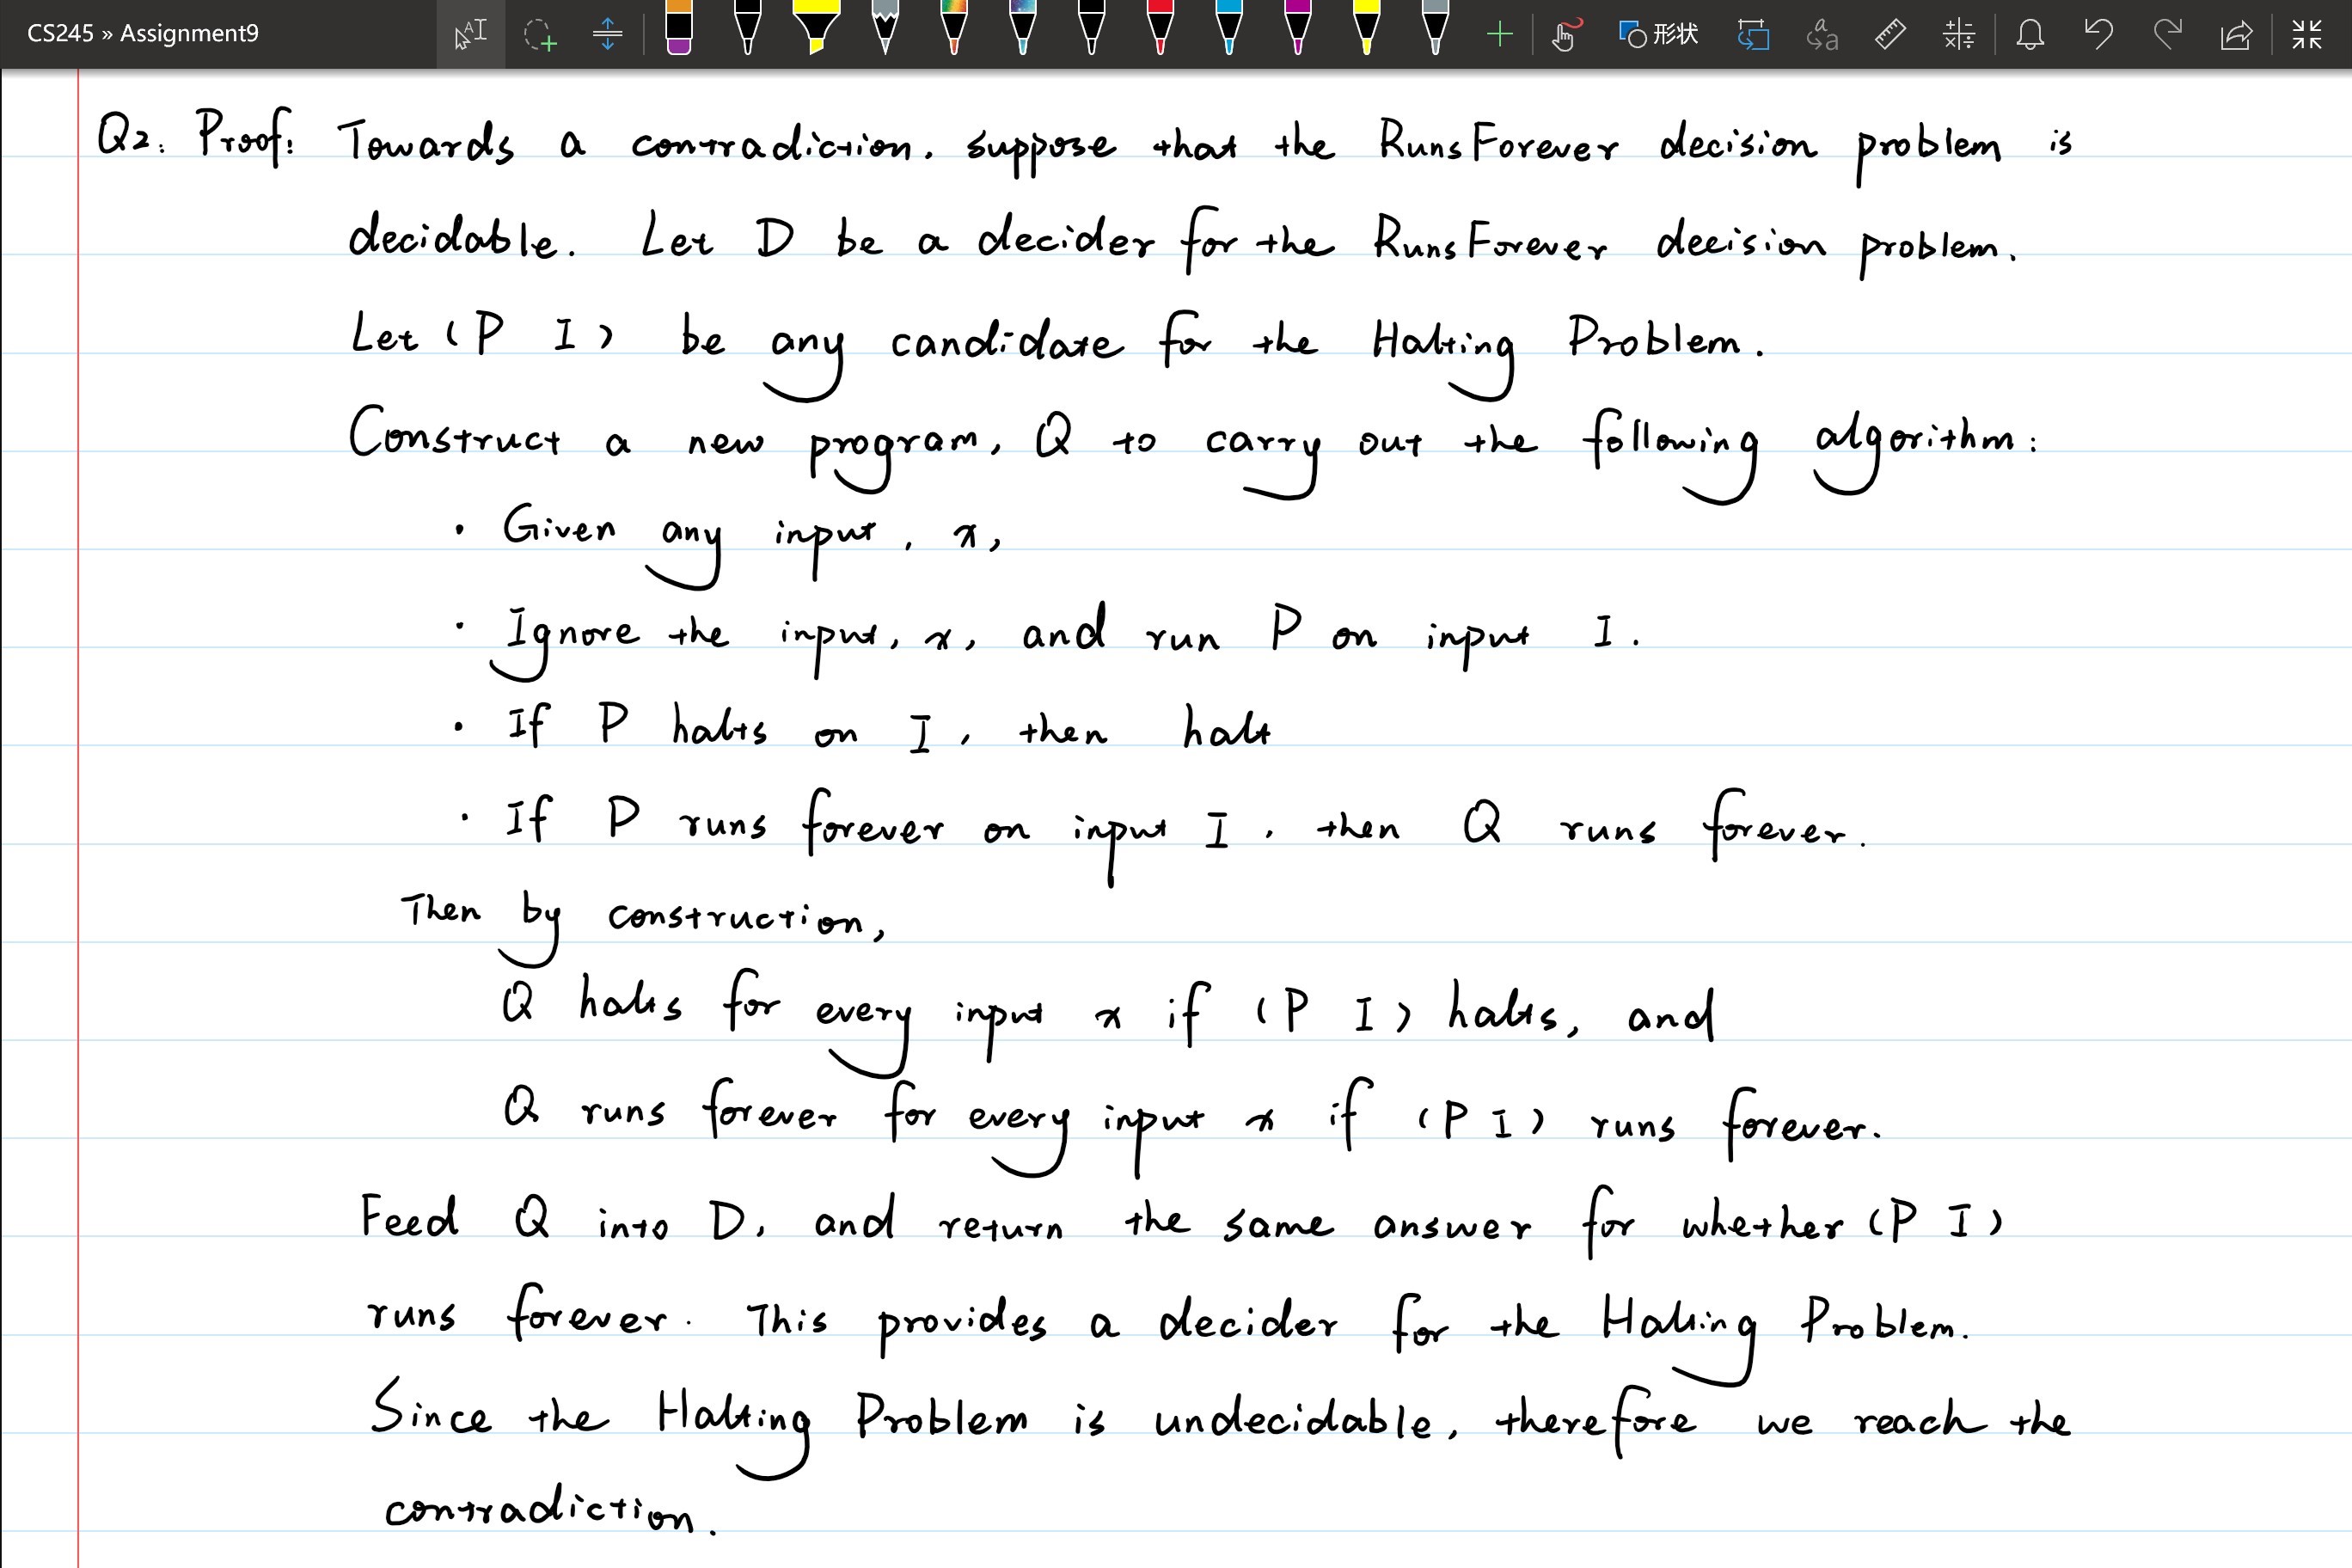 CS245 » Assignment9
形状
Q2: Proof: Towards a contradiction. suppose that the RunsForever decision problem is
decidable. Let D be a decider for the RunsForever decision problem.
Let (P I) be any candidate for the Halting Problem.
Construct a new program, Q to carry out the following algorithm:
· Given any input, x,
· Ignore the input, x, and run P on input I.
· If P halts on I, then halt
· If P runs forever on input I, then Q runs forever.
Then by construction,
Q halts for every input x if (P I) halts, and
Q runs forever for every input x if (P I) runs forever.
Feed Q into D, and return the same answer for whether (P I)
runs forever. This provides a decider for the Halting Problem.
Since the Halting Problem is undecidable, therefore we reach the
contradiction.